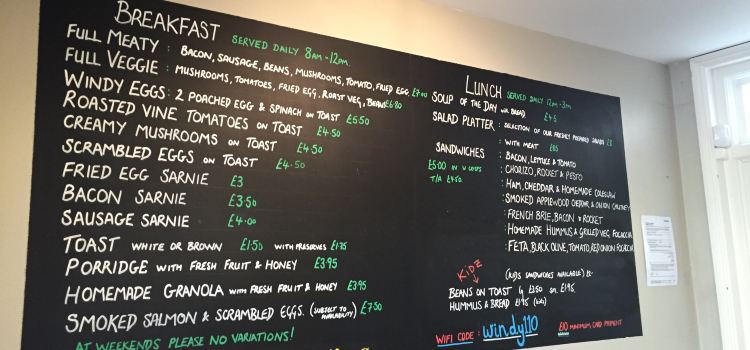 BREAKFAST SERVED DAILY 8AM - 12PM.
FULL MEATY : BACON, SAUSAGE, BEANS, MUSHROOMS, TOMATO, FRIED EGG. £7.00
FULL VEGGIE : MUSHROOMS, TOMATOES, FRIED EGG. ROAST VEG, BEANS £6.80
WINDY EGGS: 2 POACHED EGG & SPINACH ON TOAST £6.50
ROASTED VINE TOMATOES ON TOAST £4.50
CREAMY MUSHROOMS ON TOAST £4.50
SCRAMBLED EGGS ON TOAST £4.50
FRIED EGG SARNIE £3
BACON SARNIE £3.50
SAUSAGE SARNIE £4.00
TOAST WHITE OR BROWN £1.50 WITH PRESERVES £1.75
PORRIDGE WITH FRESH FRUIT & HONEY £3.95
HOMEMADE GRANOLA WITH FRESH FRUIT & HONEY £3.95
SMOKED SALMON & SCRAMBLED EGGS. (SUBJECT TO AVAILABILITY) £7.50
AT WEEKENDS PLEASE NO VARIATIONS!
LUNCH SERVED DAILY 12PM - 3PM
SOUP OF THE DAY WITH BREAD £4.5
SALAD PLATTER : SELECTION OF OUR FRESHLY PREPARED SALADS
: WITH MEAT
SANDWICHES
£5.00 IN
T/A £4.50
: BACON, LETTUCE & TOMATO
: CHORIZO, ROCKET & PESTO
: HAM, CHEDDAR & HOMEMADE COLESLAW
: SMOKED APPLEWOOD CHEDDAR & ONION CHUTNEY
: FRENCH BRIE, BACON & ROCKET
: HOMEMADE HUMMUS & GRILLED VEG, FOCACCIA
: FETA, BLACK OLIVE, TOMATO, RED ONION FOCACCIA
KIDZ
(KIDS SANDWICHES AVAILABLE)
BEANS ON TOAST
HUMMUS & BREAD £1.95
WIFI CODE : windy110
£10 MINIMUM CARD PAYMENT